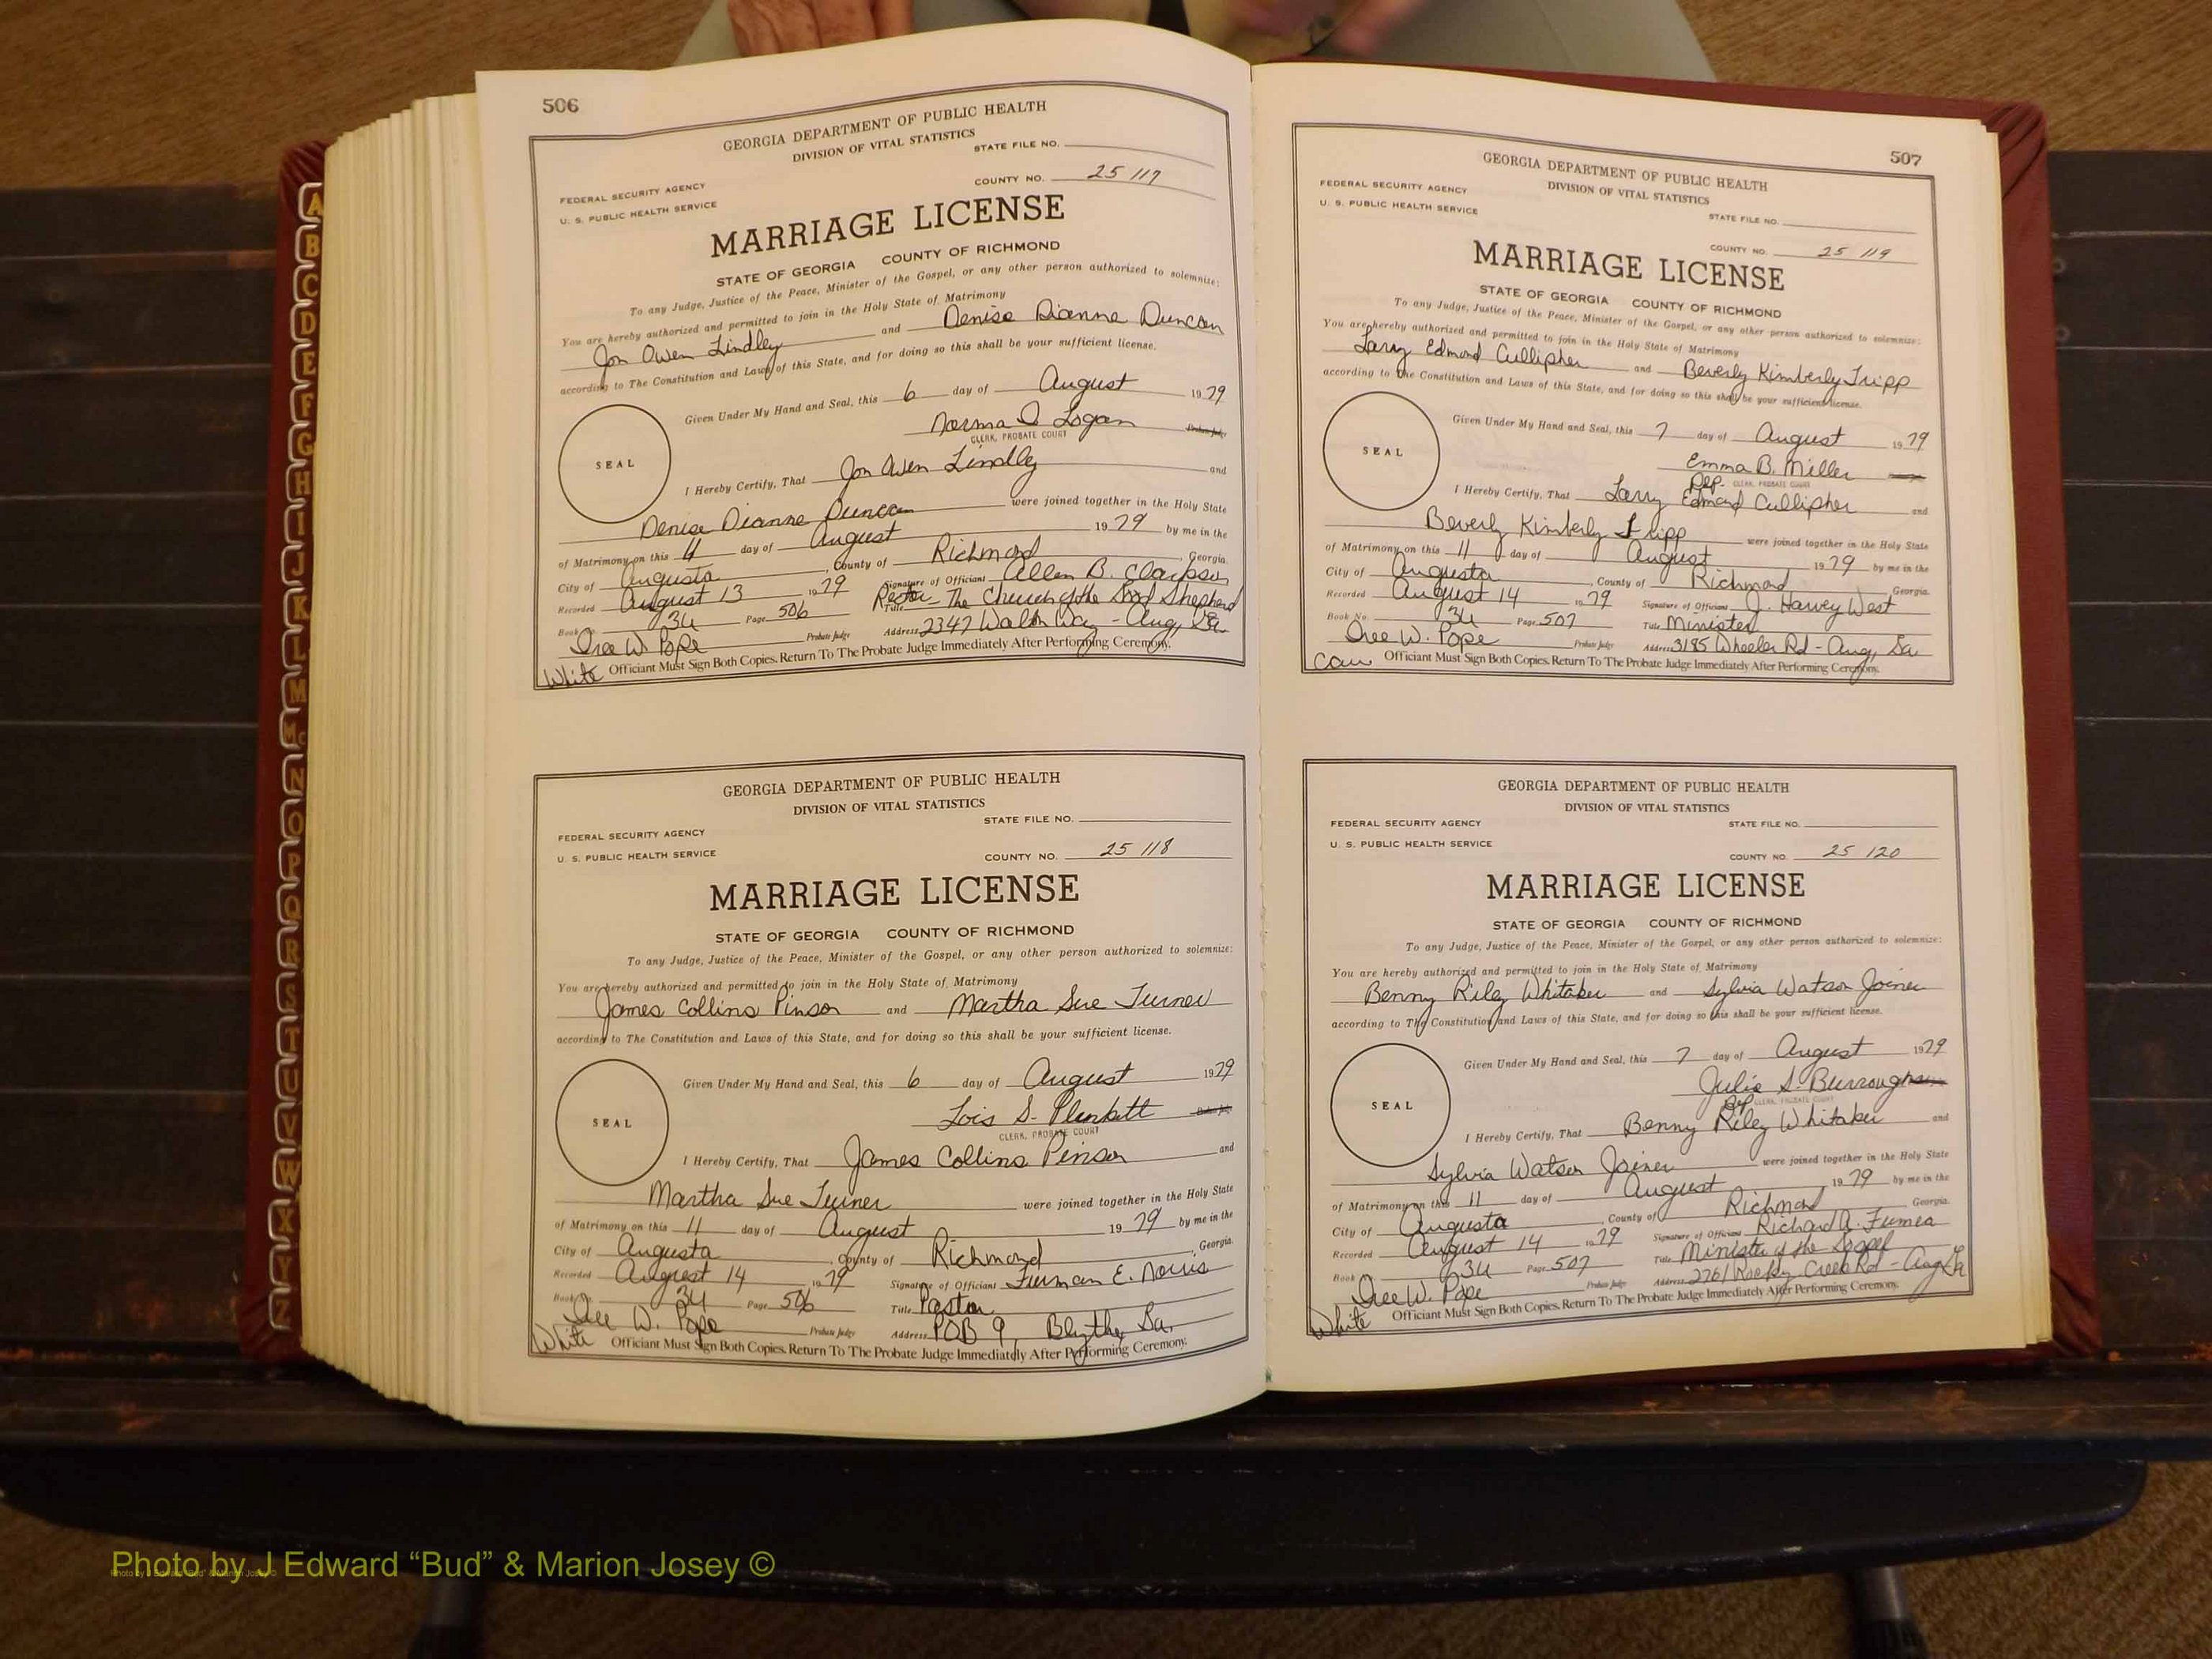 A
B
C
D
E
F
G
H
I
J
K
L
M
Mc
N
O
P
Q
R
S
T
U
V
W
X
Y
Z
506
GEORGIA DEPARTMENT OF PUBLIC HEALTH
DIVISION OF VITAL STATISTICS
STATE FILE NO.
FEDERAL SECURITY AGENCY
COUNTY NO. 25 117
U. S. PUBLIC HEALTH SERVICE
MARRIAGE LICENSE
STATE OF GEORGIA COUNTY OF RICHMOND
To any Judge, Justice of the Peace, Minister of the Gospel, or any other person authorized to solemnize:
You are hereby authorized and permitted to join in the Holy State of Matrimony
Jon Owen Lindley and Denise Dianne Duncan
according to The Constitution and Laws of this State, and for doing so this shall be your sufficient license.
Given Under My Hand and Seal, this 6 day of August 1979
Norma D Logan
CLERK, PROBATE COURT
SEAL
I Hereby Certify, That Jon Owen Lindley and
Denise Dianne Duncan were joined together in the Holy State
of Matrimony on this 11 day of August 1979 by me in the
City of Augusta, County of Richmond, Georgia.
Recorded August 13 1979 Signature of Officiant Allen B. Clarkson
Book No. 34 Page 506 Title Rector - The Church of the Good Shepherd
Dree W. Pope Probate Judge Address 2347 Walton Way - Aug, Ga
White Officiant Must Sign Both Copies. Return To The Probate Judge Immediately After Performing Ceremony.
GEORGIA DEPARTMENT OF PUBLIC HEALTH
DIVISION OF VITAL STATISTICS
STATE FILE NO.
FEDERAL SECURITY AGENCY
U. S. PUBLIC HEALTH SERVICE
COUNTY NO. 25 118
MARRIAGE LICENSE
STATE OF GEORGIA COUNTY OF RICHMOND
To any Judge, Justice of the Peace, Minister of the Gospel, or any other person authorized to solemnize:
You are hereby authorized and permitted to join in the Holy State of Matrimony
James Collins Pinson and Martha Sue Turner
according to The Constitution and Laws of this State, and for doing so this shall be your sufficient license.
Given Under My Hand and Seal, this 6 day of August 1979
Lois S. Plunkett
CLERK, PROBATE COURT
SEAL
I Hereby Certify, That James Collins Pinson and
Martha Sue Turner were joined together in the Holy State
of Matrimony on this 11 day of August 1979 by me in the
City of Augusta, County of Richmond, Georgia.
Recorded August 14 1979 Signature of Officiant Furman E. Norris
Book No. 34 Page 506 Title Pastor
Dree W. Pope Probate Judge Address POB 9, Blythe, Ga.
White Officiant Must Sign Both Copies. Return To The Probate Judge Immediately After Performing Ceremony.
507
GEORGIA DEPARTMENT OF PUBLIC HEALTH
DIVISION OF VITAL STATISTICS
FEDERAL SECURITY AGENCY
U. S. PUBLIC HEALTH SERVICE
STATE FILE NO.
COUNTY NO. 25 119
MARRIAGE LICENSE
STATE OF GEORGIA COUNTY OF RICHMOND
To any Judge, Justice of the Peace, Minister of the Gospel, or any other person authorized to solemnize:
You are hereby authorized and permitted to join in the Holy State of Matrimony
Larry Edmond Cullipher and Beverly Kimberly Tripp
according to the Constitution and Laws of this State, and for doing so this shall be your sufficient license.
Given Under My Hand and Seal, this 7 day of August 1979
Emma B. Miller
Dep. CLERK, PROBATE COURT
SEAL
I Hereby Certify, That Larry Edmond Cullipher and
Beverly Kimberly Tripp were joined together in the Holy State
of Matrimony on this 11 day of August 1979 by me in the
City of Augusta, County of Richmond, Georgia.
Recorded August 14 1979 Signature of Officiant J. Harvey West
Book No. 34 Page 507 Title Minister
Dree W. Pope Probate Judge Address 3185 Wheeler Rd - Aug, Ga.
Cau Officiant Must Sign Both Copies. Return To The Probate Judge Immediately After Performing Ceremony.
GEORGIA DEPARTMENT OF PUBLIC HEALTH
DIVISION OF VITAL STATISTICS
FEDERAL SECURITY AGENCY
STATE FILE NO.
U. S. PUBLIC HEALTH SERVICE
COUNTY NO. 25 120
MARRIAGE LICENSE
STATE OF GEORGIA COUNTY OF RICHMOND
To any Judge, Justice of the Peace, Minister of the Gospel, or any other person authorized to solemnize:
You are hereby authorized and permitted to join in the Holy State of Matrimony
Benny Riley Whitaker and Sylvia Watson Joiner
according to The Constitution and Laws of this State, and for doing so this shall be your sufficient license.
Given Under My Hand and Seal, this 7 day of August 1979
Julia S. Burroughs
Dep CLERK, PROBATE COURT
SEAL
I Hereby Certify, That Benny Riley Whitaker and
Sylvia Watson Joiner were joined together in the Holy State
of Matrimony on this 11 day of August 1979 by me in the
City of Augusta, County of Richmond Georgia.
Recorded August 14 1979 Signature of Officiant Richard A.
Book 34 Page 507 Title Minister of the Gospel
Dree W. Pope Probate Judge Address 2761 Rocky Creek Rd - Aug Ga
White Officiant Must Sign Both Copies. Return To The Probate Judge Immediately After Performing Ceremony.
Photo by J Edward “Bud” & Marion Josey ©
Photo by J Edward “Bud” & Marion Josey ©